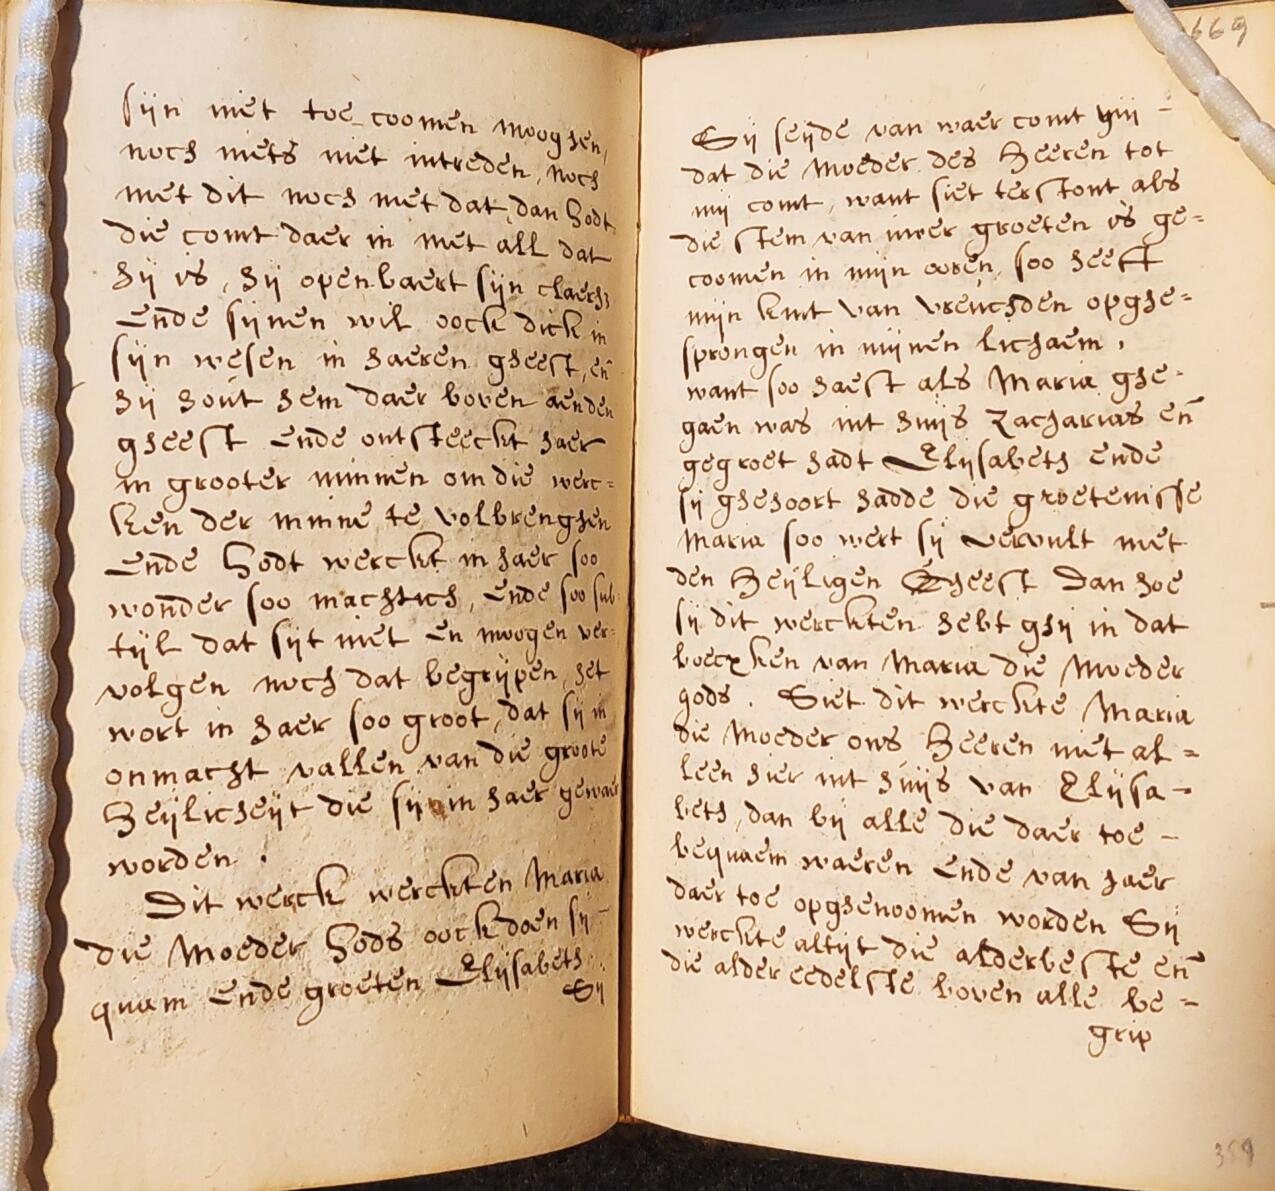 sijn niet toe coomen mooghen,
noch niets niet intreden, noch
met dit noch met dat, dan Godt
die comt daer in met all dat
hij is, hij openbaert sijn claerh,
Ende sijnen wil oock dick in
sijn wesen in haeren gheest, en̄
hij hout hem daer boven aenden
gheest Ende ontsteeckt haer
in grooter minnen om die werc=
ken der minne te volbrenghen
Ende Godt werckt in haer soo
wonder soo machtich, Ende soo sub=
tijl dat sijt niet en moogen ver=
volgen noch dat begrijpen, het
wort in haer soo groot, dat sij in
onmacht vallen van die groote
Heijlicheijt die sij in haer gewaer
worden.
Dit werck werckten Maria
die Moeder Gods oock doen sij
quam Ende groeten Elijsabeth.
Sij
669
Sij seijde van waer comt mij -
dat die Moeder des Heeren tot
mij comt, want siet terstont als
die stem van uwer groeten is ge=
coomen in mijn ooren, soo heeft
mijn kint van vreuchden opghe=
sprongen in mijnen lichaem,
want soo haest als Maria ghe-
gaen was int huijs Zacharias en̄
gegroet hadt Elijsabeth ende
sij ghehoort hadde die groetenisse
Maria soo wert sij vervult met
den Heijligen Gheest Dan hoe
sij dit werckten hebt ghij in dat
boecxken van Maria die Moeder
gods. Siet dit werckte Maria
die Moeder ons Heeren niet al=
leen hier int huijs van Elijsa-
beth, dan bij alle die daer toe -
bequaem waeren Ende van haer
daer toe opghenoomen worden Sij
werckte altijt die alderbeste en̄
die alder eedelste boven alle be=
grip
359